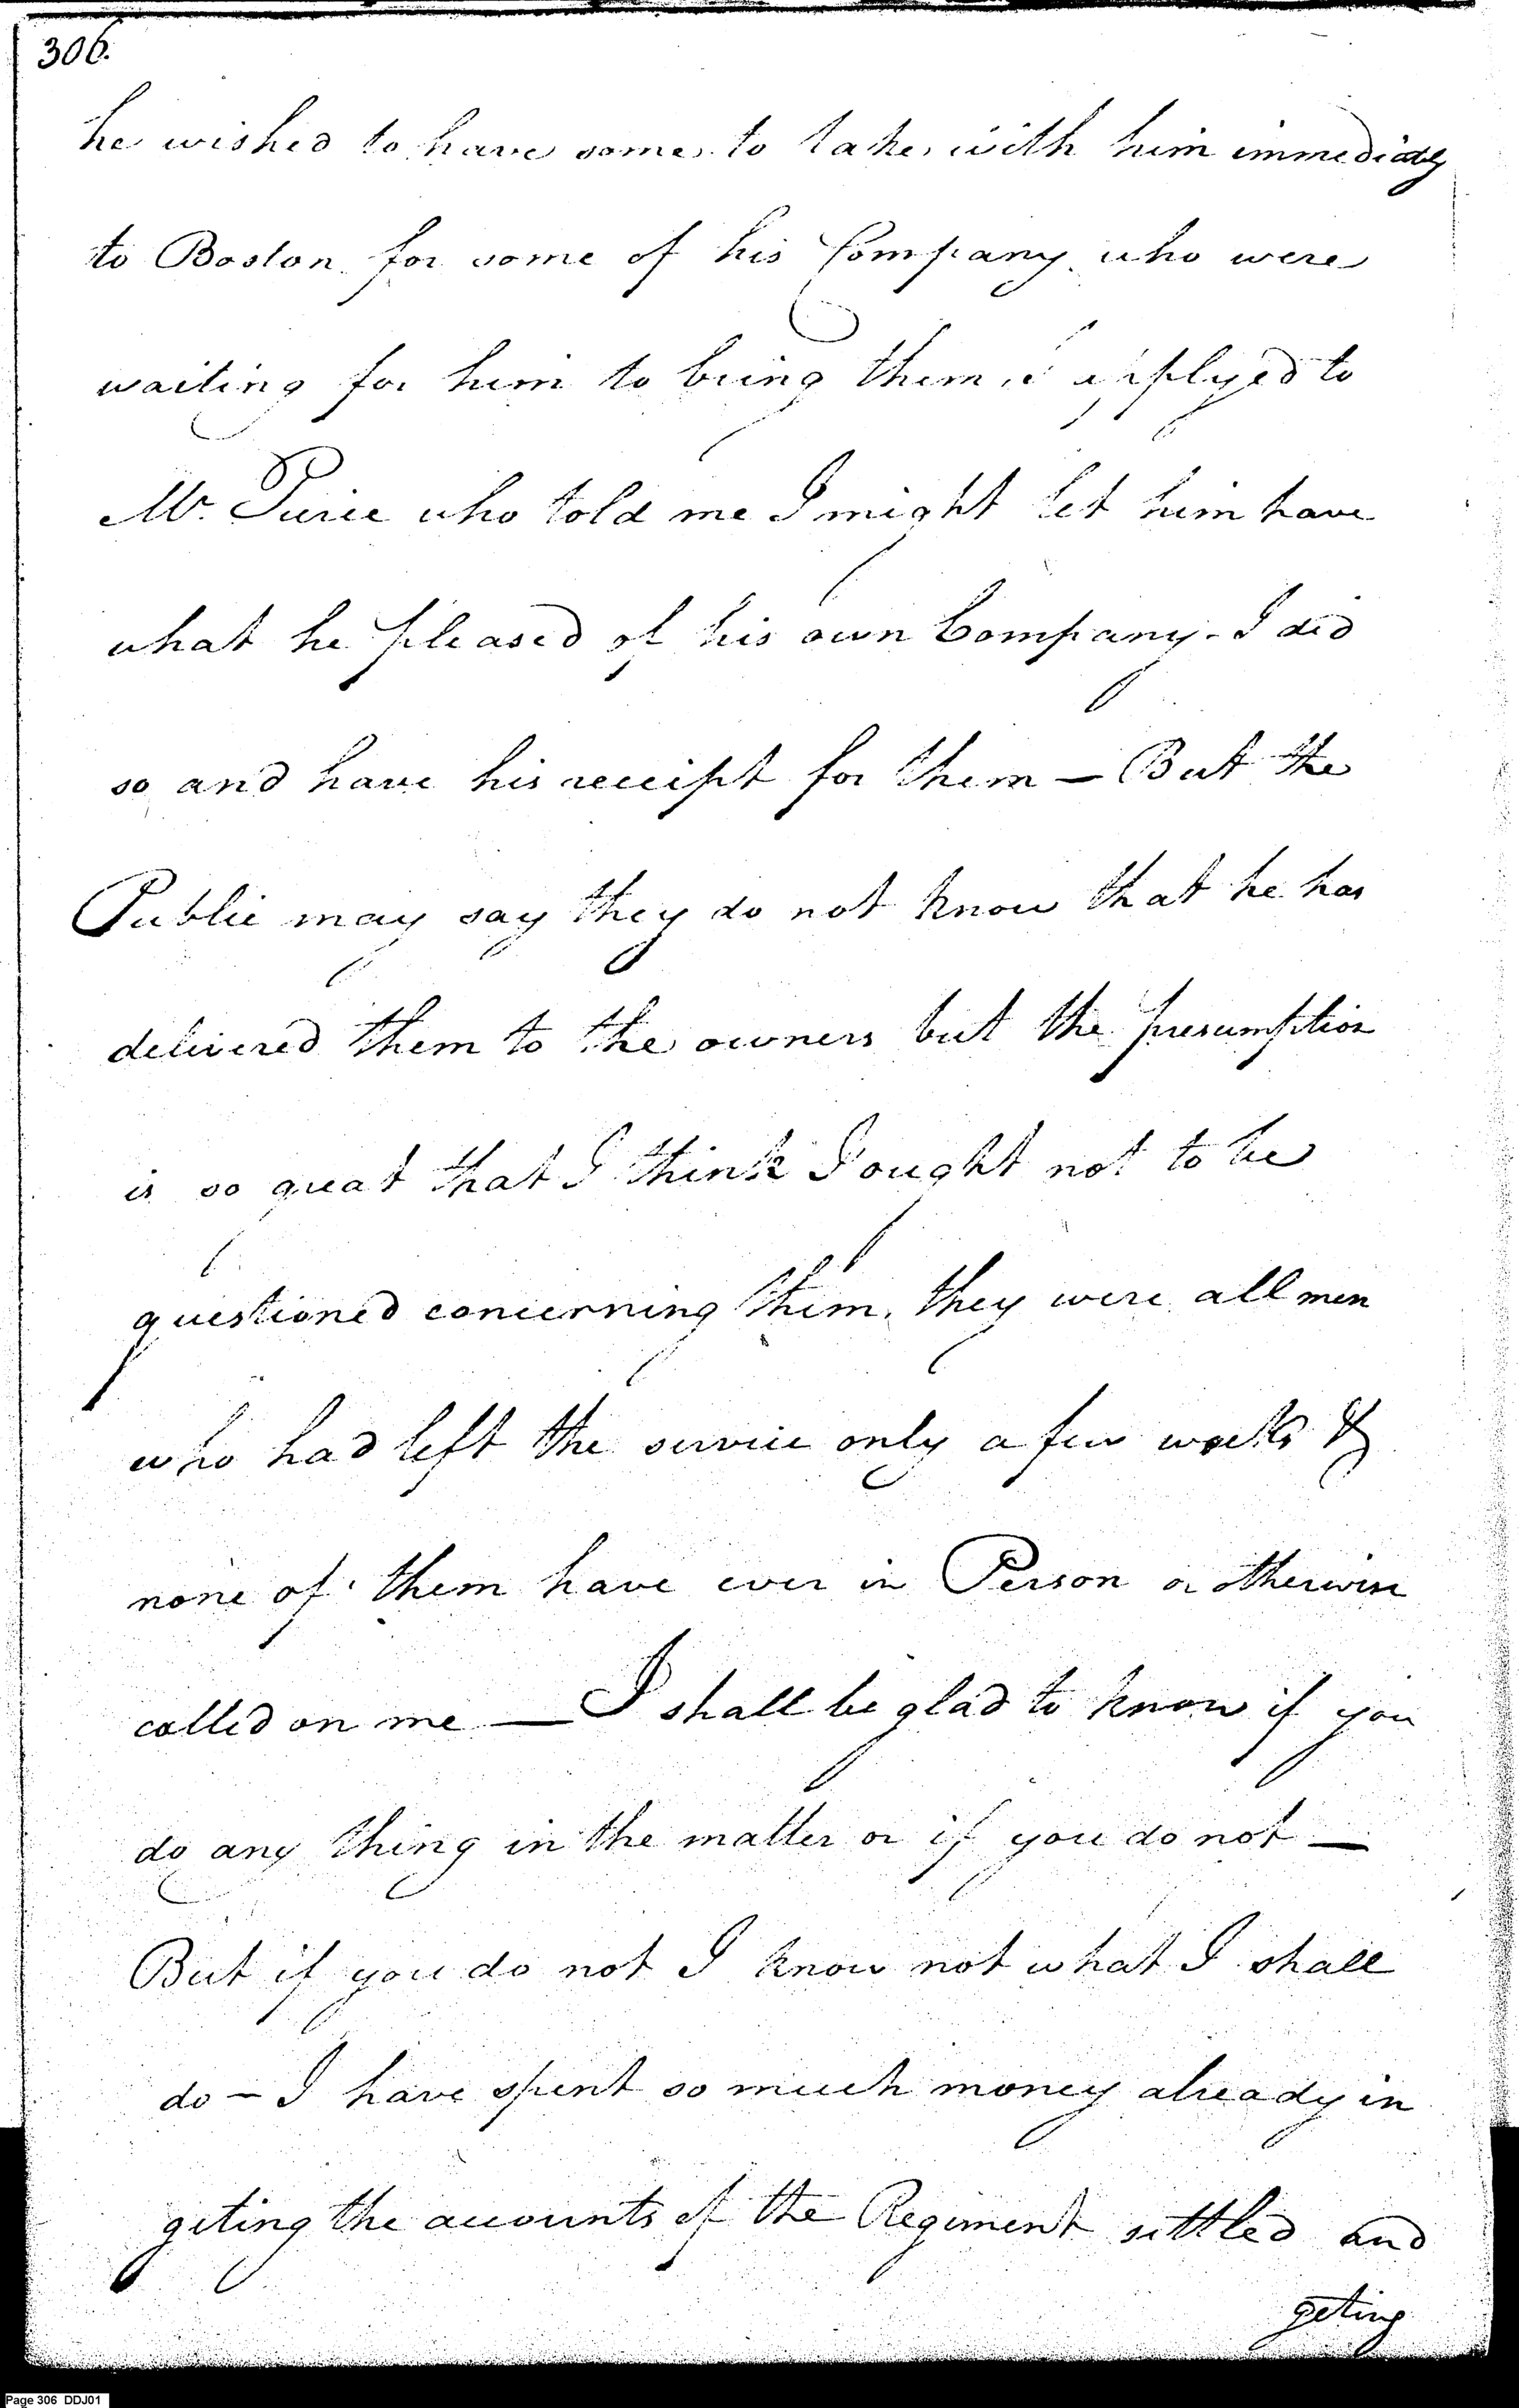 306.
he wished to have some to take with him immediately
to Boston for some of his Company who were
waiting for him to bring them, I applyed to
Mr. Pierce who told me I might let him have
what he pleased of his own Company - I did
so and have his receipt for them — But the
Public may say they do not know that he has
delivered them to the owners but the presumption
is so great that I think I ought not to be
questioned concerning them. they were all men
who had left the service only a few weeks &
none of them have ever in Person or otherwise
called on me — I shall be glad to know if you
do any thing in the matter or if you do not —
But if you do not I know not what I shall
do - I have spent so much money already in
geting the accounts of the Regiment settled and
geting
Page 306 DDJ01